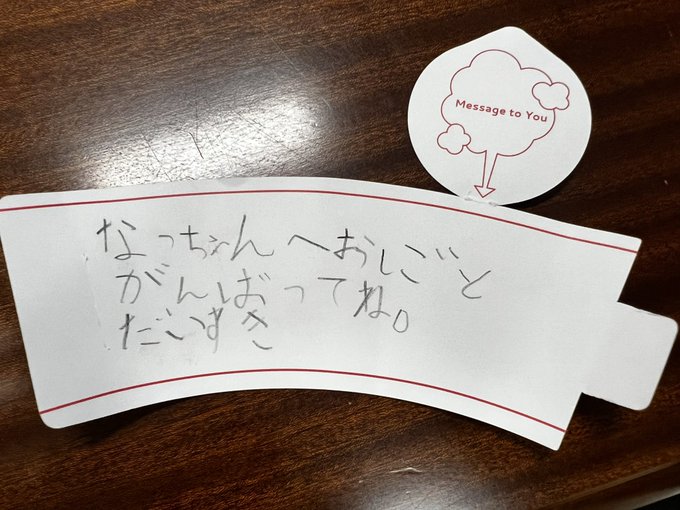 Message to You
なっちゃんへおしごと
がんばってね。
だいすき